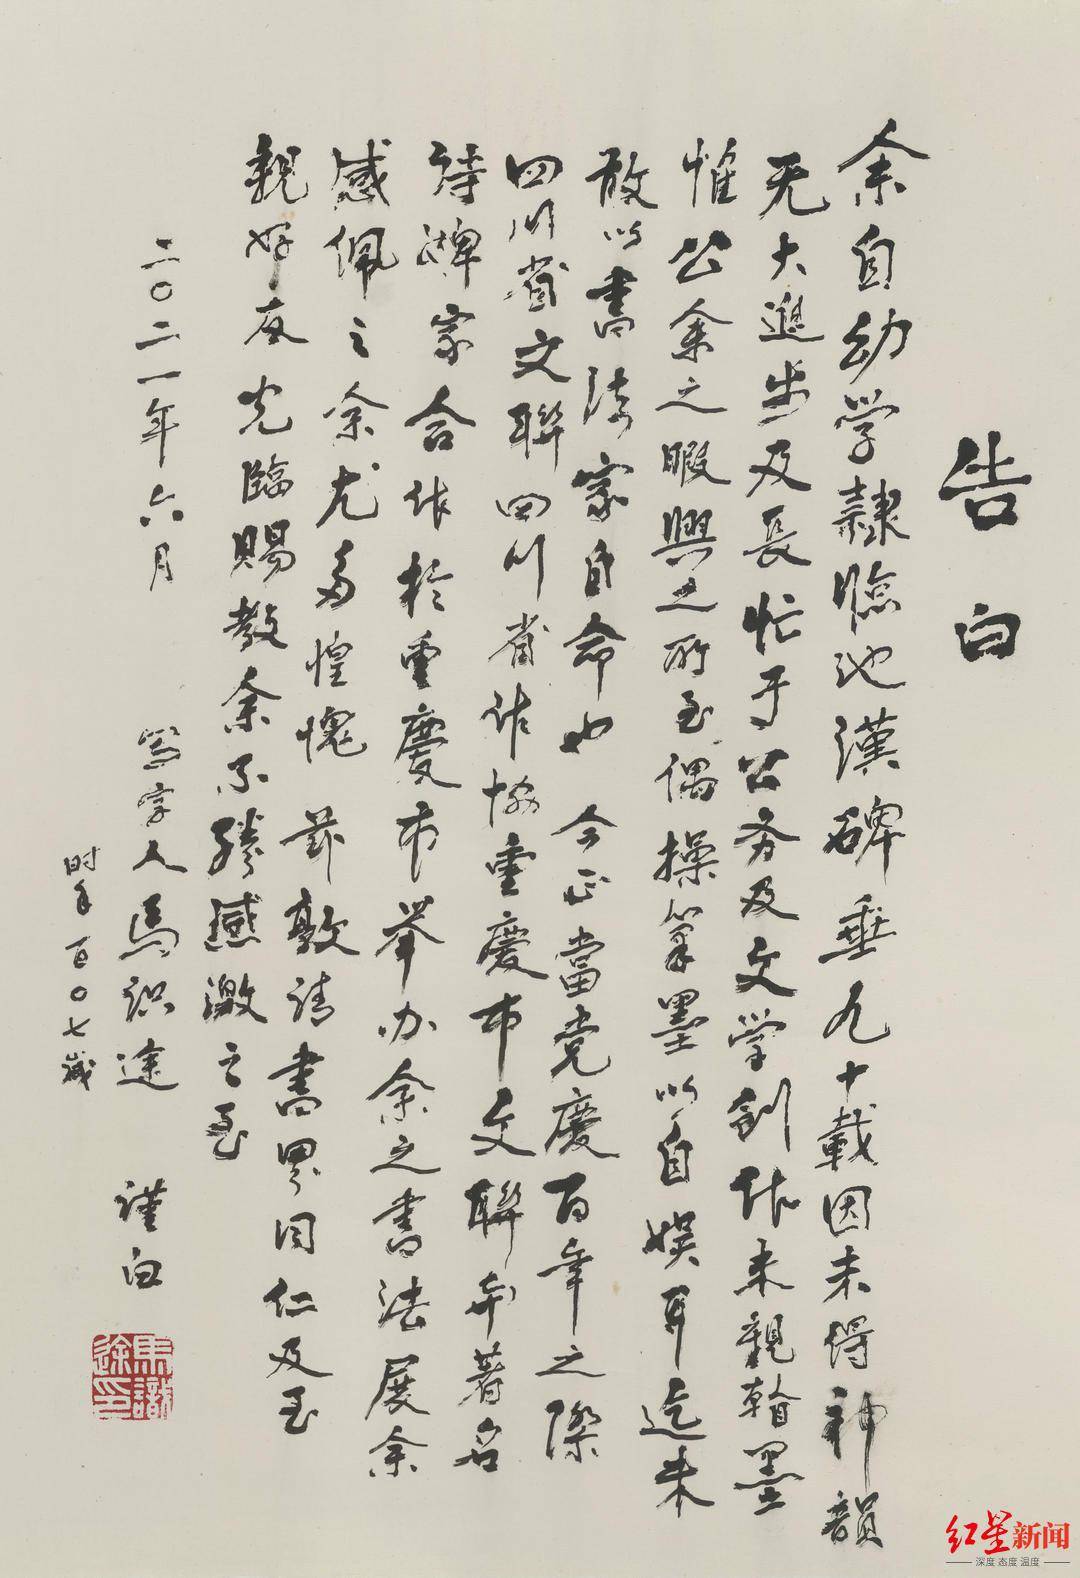 告白
余自幼学隸臨池漢碑垂九十載因未得神韻
无大進步及長忙于公务及文学创作未親翰墨
惟公余之暇興之所至偶操筆墨以自娱耳迄未
敢以書法家自命也 今正當党慶百年之際
四川省文聯四川省作協重慶市文聯与著名
詩碑家合作於重慶市举办余之書法展余
感佩之余尤多惶愧 兹敦请書界同仁及至
親好友光臨賜教余不勝感激之至
二〇二一年六月 寫字人馬识途 谨白
时年百〇七歲
馬識途印
红星新闻
深度 态度 温度